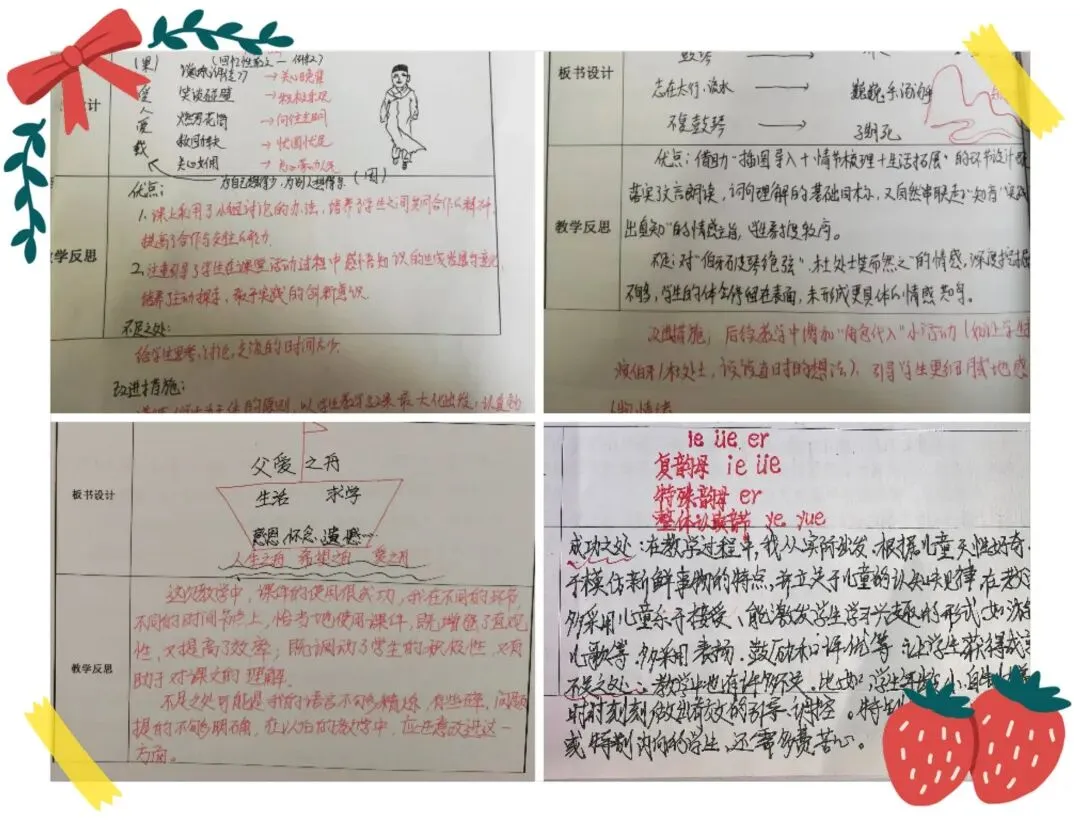 (回忆性散文
笑谈碰壁
燃放花筒
救回车夫
关心女佣
为自己想得少,为别人想得多
教学反思
优点:
1. 课上利用了小组讨论的办法,培养了学生之间共同合作的精神,
提高了合作与交往的能力.
2. 注重引导了学生在课堂活动过程中感悟知识的生成发展与变化
培养了主动探求、敢于实践的创新意识.
不足之处:
给学生思考、讨论、交流的时间太少.
改进措施:
板书设计
鼓琴
志在太行、流水
巍巍乎 汤汤乎
不复鼓琴
子期死
教学反思
优点:借助“插图导入+情节梳理+生活拓展”的环节设计
落实文言朗读、词句理解的基础目标,又自然串联起“知音”“实践
出真知”的情感主旨
不足:对“伯牙破琴绝弦”、“杜处士笑而然之”的情感,深度挖掘
不够,学生的体会停留在表面,未形成更具体的情感共鸣。
改进措施:后续教学中增加“角色代入”小活动(如让学生
演伯牙/杜处士,谈谈当时的想法),引导学生更细腻地感
板书设计
父爱之舟
生活 求学
感恩 怀念 遗憾…
人生之舟 希望之舟 爱之舟
教学反思
这次教学中,课件的使用很成功,我在不同的环节,
不同的时间节点上,恰当地使用课件,既增强了直观
性,又提高了效率;既调动了学生的积极性,又有
助于对课文的理解.
不足之处可能是我的语言不够精炼,有些碎,问题
提的不够明确,在以后的教学中,应注意改进这一
方面。
ie üe er
复韵母 ie üe
特殊韵母 er
整体认读音节 ye yue
成功之处:在教学过程中,我从实际出发,根据儿童天性好奇
于模仿新鲜事物的特点,并立足于儿童的认知规律,在教
多采用儿童乐于接受、能激发学生学习兴趣的形式,如游
儿歌等,多采用表扬、鼓励和评优等,让学生获得成
不足之处:教学中也有许多不足,比如学生年龄小,自制
时时刻刻做出有效的引导、调控。特
或特别内向的学生,还需多费苦心。